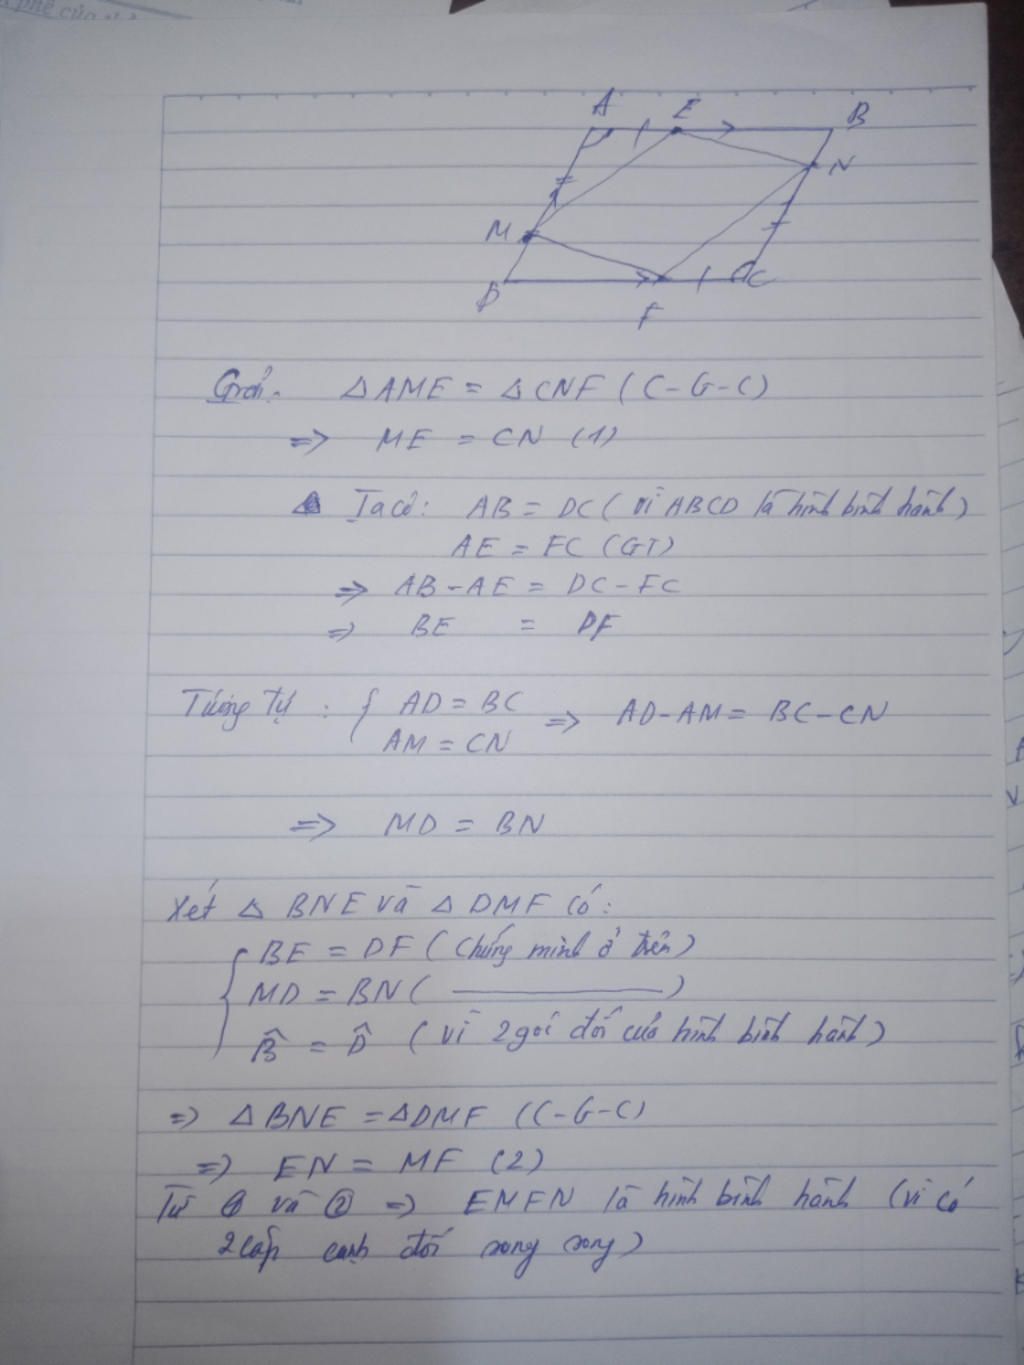 phê của
A E B
N
M
D F C
Giải: △AME = △CNF (C-G-C)
=> ME = CN (1)
Ta có: AB = DC (vì ABCD là hình bình hành)
AE = FC (GT)
=> AB - AE = DC - FC
=> BE = DF
Tương tự : { AD = BC
AM = CN => AD - AM = BC - CN
=> MD = BN
Xét △ BNE và △ DMF có:
BE = DF (chứng minh ở trên)
MD = BN ( ——— )
B̂ = D̂ (vì 2 gói đối của hình bình hành)
=> △BNE = △DMF (C-G-C)
=> EN = MF (2)
Từ ① và ② => EMFN là hình bình hành (vì có
2 cấp cạnh đối song song)